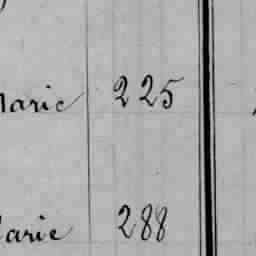 Marie 225
Marie 288